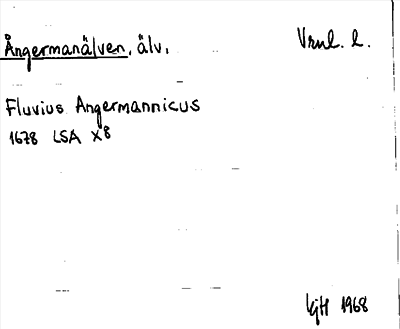 Ångermanälven, älv. Vrml. l.
Fluvius Angermannicus
1678 LSA X8
KjH 1968